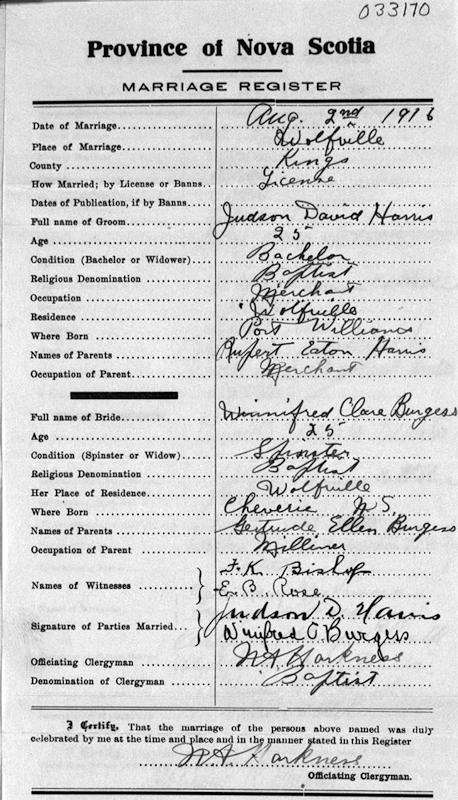 033170
Province of Nova Scotia
MARRIAGE REGISTER
Date of Marriage Aug. 2nd 1916
Place of Marriage Wolfville
County Kings
How Married; by License or Banns License
Dates of Publication, if by Banns
Full name of Groom Judson David Harris
Age 25
Condition (Bachelor or Widower) Bachelor
Religious Denomination Baptist
Occupation Merchant
Residence Wolfville
Where Born Port Williams
Names of Parents Rupert Eaton Harris
Occupation of Parent Merchant
Full name of Bride Winnifred Clare Burgess
Age 25
Condition (Spinster or Widow) Spinster
Religious Denomination Baptist
Her Place of Residence Wolfville
Where Born Cheverie N S.
Names of Parents Gertrude Ellen Burgess
Occupation of Parent Milliner
Names of Witnesses F. K. Bishop
E. B. Rose
Signature of Parties Married Judson D. Harris
Winifred C Burgess
Officiating Clergyman Harkness
Denomination of Clergyman Baptist
I Certify, That the marriage of the persons above named was duly
celebrated by me at the time and place and in the manner stated in this Register
Harkness
Officiating Clergyman.